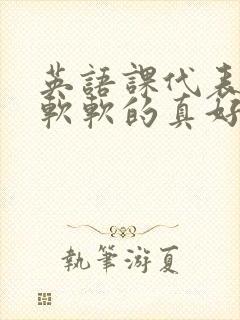 英語課代表
軟軟的真好
執筆游夏